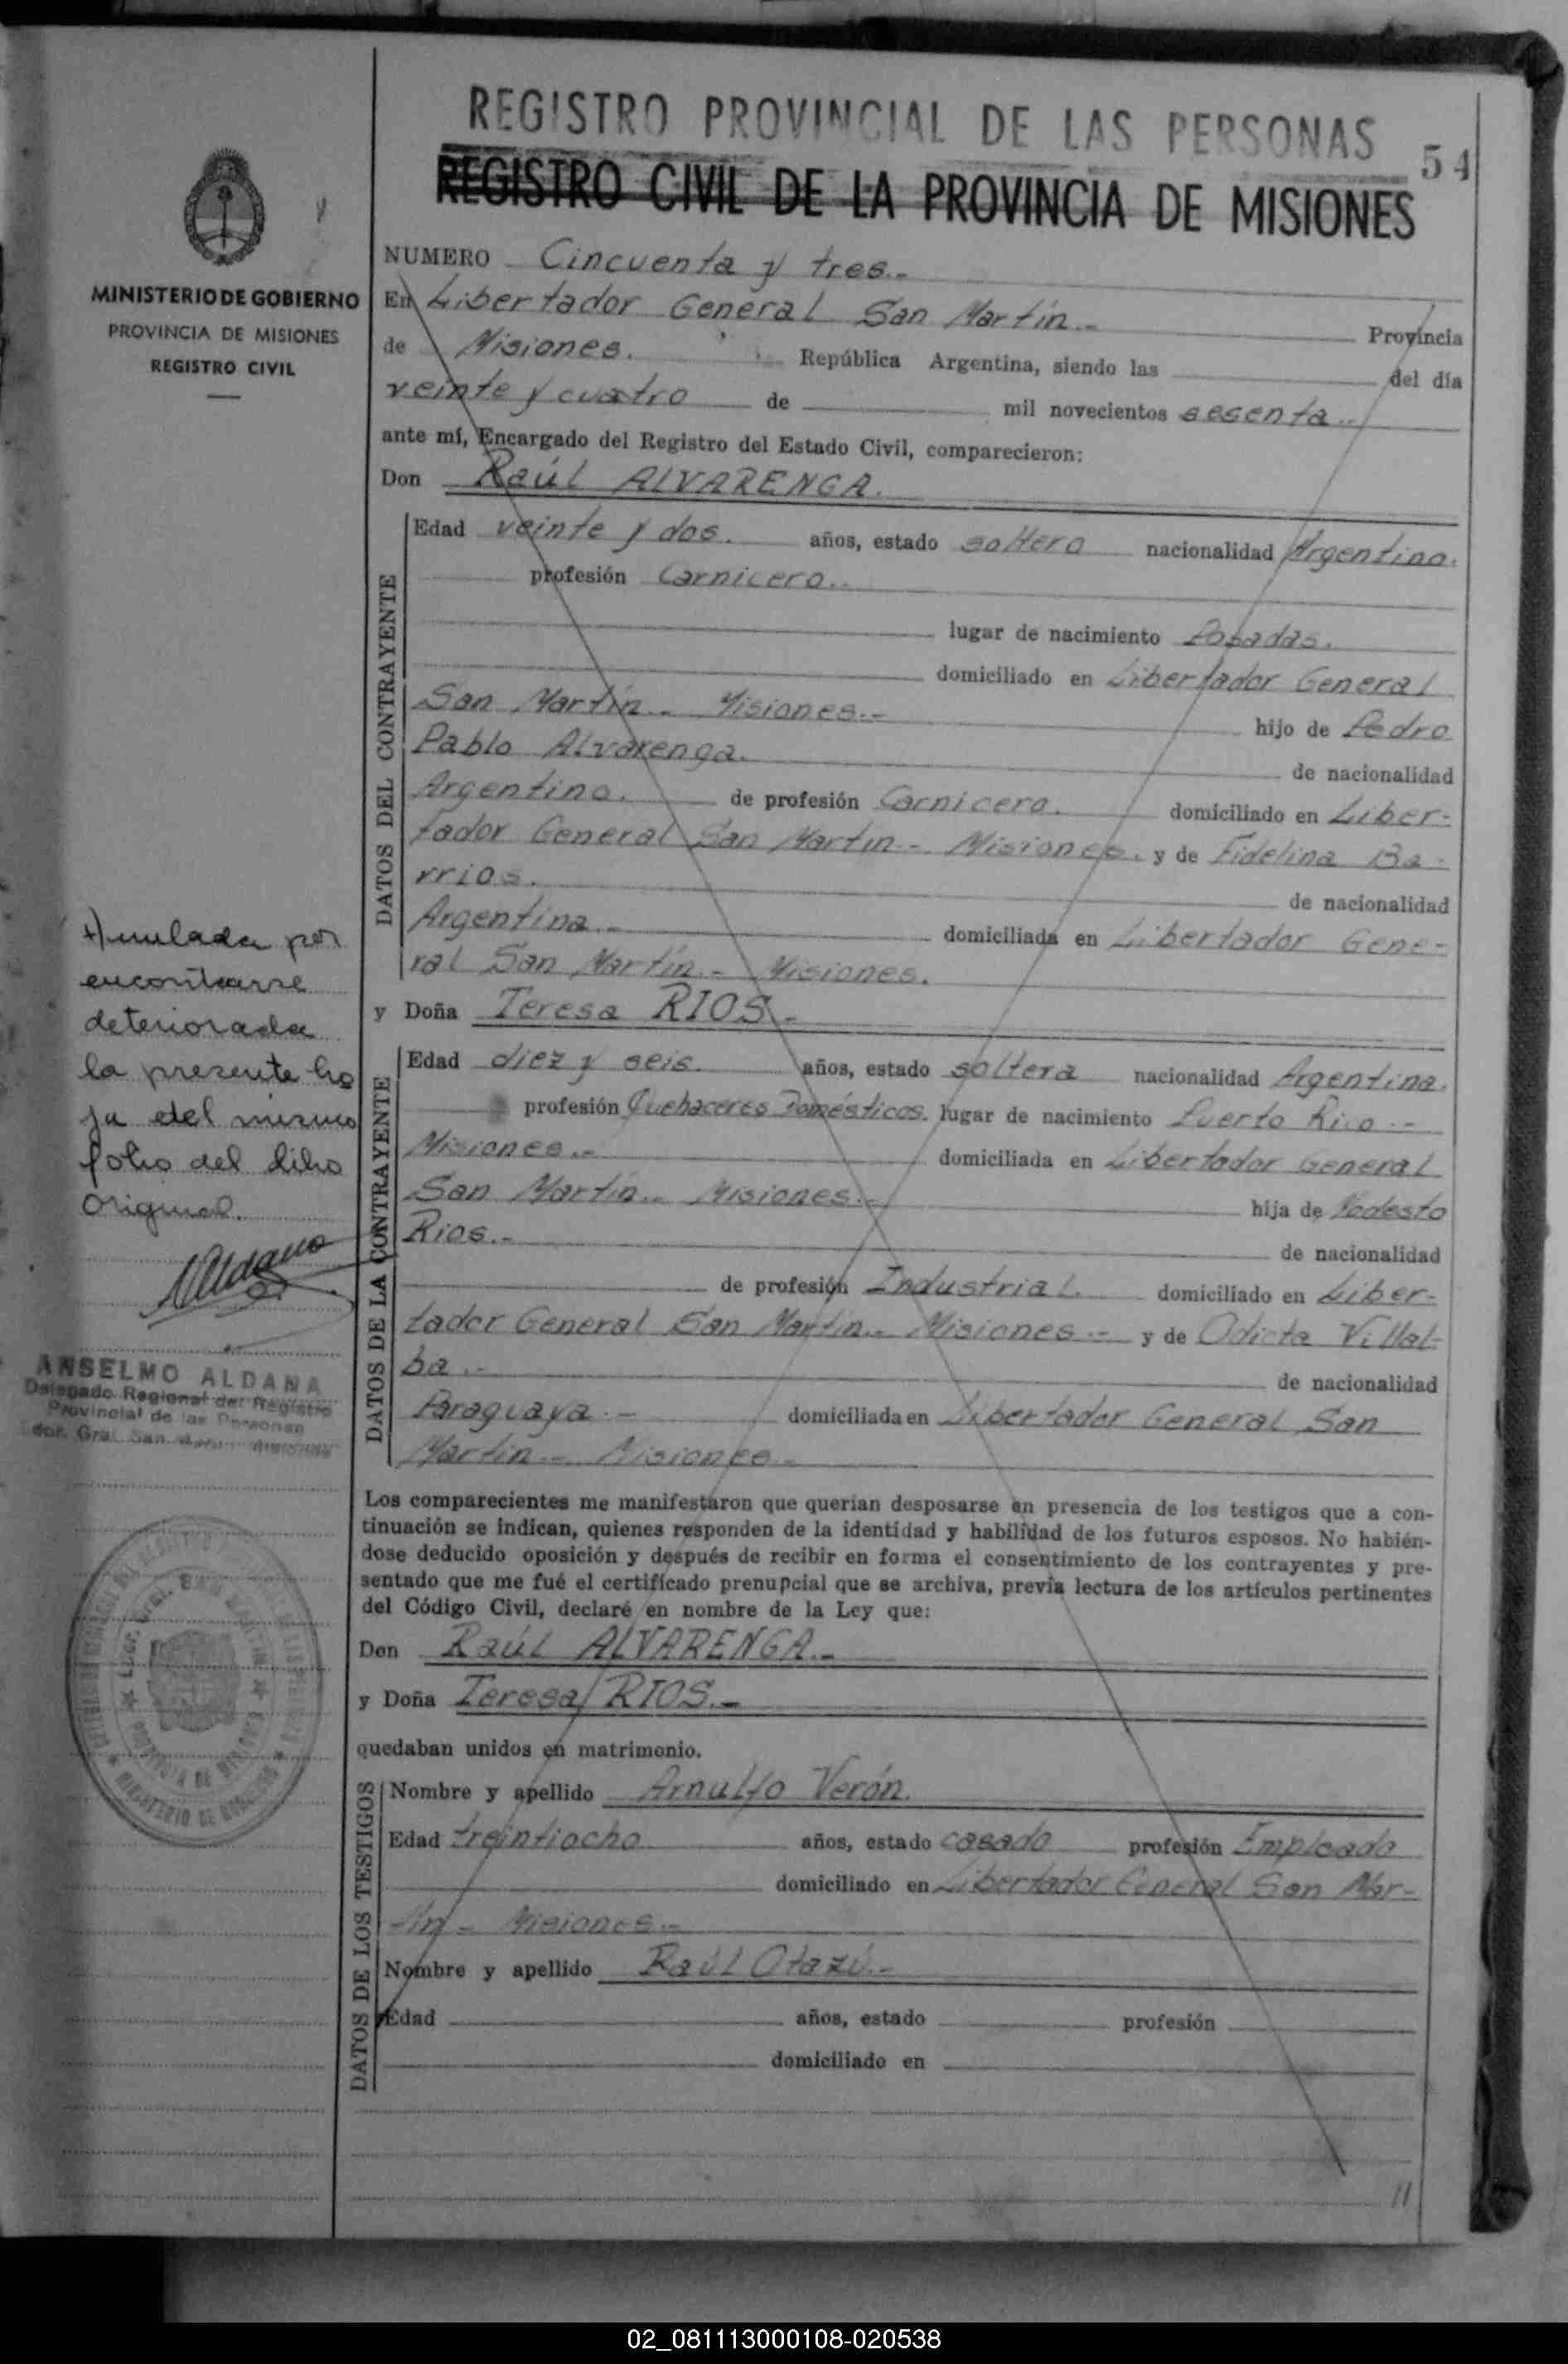 REGISTRO PROVINCIAL DE LAS PERSONAS
54
REGISTRO CIVIL DE LA PROVINCIA DE MISIONES
MINISTERIO DE GOBIERNO
PROVINCIA DE MISIONES
REGISTRO CIVIL
NUMERO Cincuenta y tres.-
En Libertador General San Martín.- Provincia
de Misiones. República Argentina, siendo las del día
veinte y cuatro de mil novecientos sesenta.-
ante mí, Encargado del Registro del Estado Civil, comparecieron:
Don Raúl ALVARENGA.
DATOS DEL CONTRAYENTE
Edad veinte y dos. años, estado soltero nacionalidad Argentino.
profesión Carnicero..
lugar de nacimiento Posadas.
domiciliado en Libertador General
San Martín.- Misiones.- hijo de Pedro
Pablo Alvarenga. de nacionalidad
Argentino. de profesión Carnicero. domiciliado en Liber-
tador General San Martín.- Misiones. y de Fidelina Ba-
rrios. de nacionalidad
Argentina.- domiciliada en Libertador Gene-
ral San Martín.- Misiones.
y Doña Teresa RIOS.-
DATOS DE LA CONTRAYENTE
Edad diez y seis. años, estado soltera nacionalidad Argentina.
profesión Quehaceres Domésticos. lugar de nacimiento Puerto Rico.-
Misiones.- domiciliada en Libertador General
San Martín.- Misiones.- hija de Modesto
Rios.- de nacionalidad
de profesión Industrial. domiciliado en Liber-
tador General San Martín.- Misiones.- y de Odicta Villal-
ba.- de nacionalidad
Paraguaya.- domiciliada en Libertador General San
Martín.- Misiones.-
Los comparecientes me manifestaron que querían desposarse en presencia de los testigos que a con-
tinuación se indican, quienes responden de la identidad y habilidad de los futuros esposos. No habién-
dose deducido oposición y después de recibir en forma el consentimiento de los contrayentes y pre-
sentado que me fué el certificado prenupcial que se archiva, previa lectura de los artículos pertinentes
del Código Civil, declaré en nombre de la Ley que:
Don Raúl ALVARENGA.-
y Doña Teresa RIOS.-
quedaban unidos en matrimonio.
DATOS DE LOS TESTIGOS
Nombre y apellido Arnulfo Verón.
Edad treintiocho años, estado casado profesión Empleado
domiciliado en Libertador General San Mar-
tín.- Misiones.-
Nombre y apellido Raúl Otazú.-
Edad años, estado profesión
domiciliado en
Anulada por
encontrarse
deteriorada
la presente ho
ja del mismo
folio del libro
Original.
Aldana
ANSELMO ALDANA
Delegado Regional del Registro
Provincial de las Personas
Ldor. Gral. San Martín Misiones
02_081113000108-020538